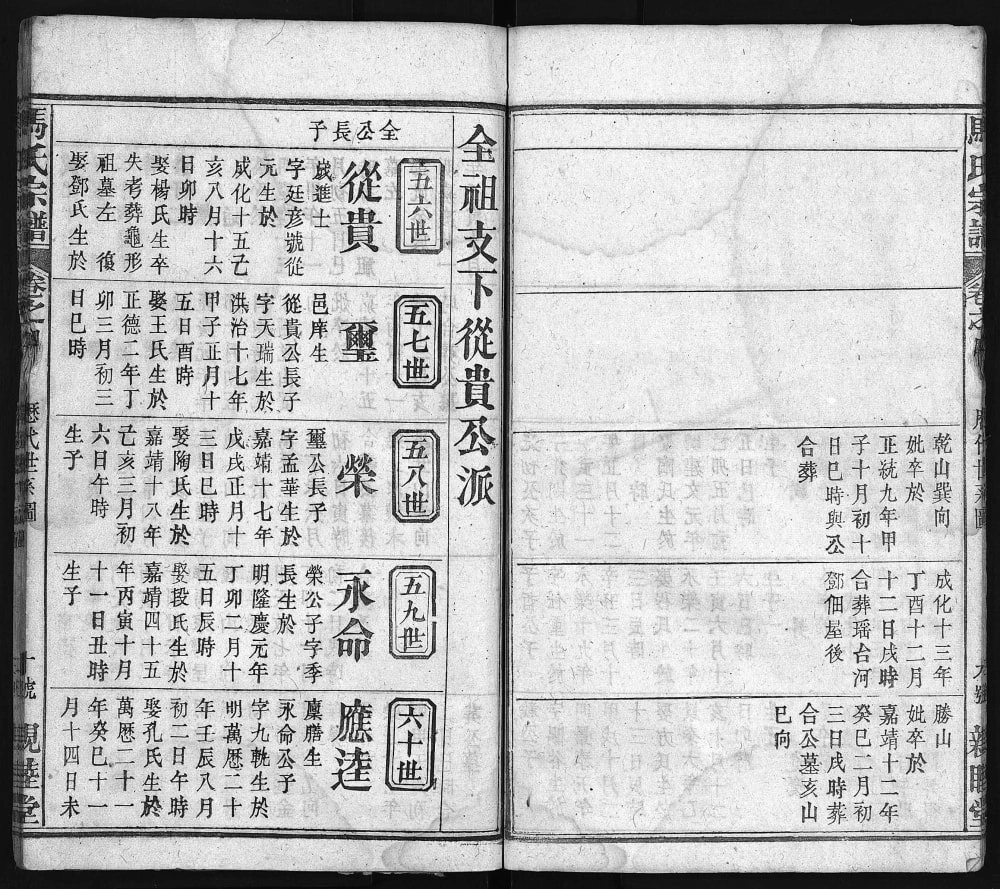 乾山巽向
妣卒於
正統九年甲
子十月初十
日巳時與公
合葬
成化十三年
丁酉十二月
十二日戌時
合葬瑶台河
鄧佃屋後
勝山
妣卒於
嘉靖十二年
癸巳二月初
三日戌時葬
合公墓亥山
巳向
親睦堂
全祖支下從貴公派
五六世
全公長子
從貴
歲進士
字廷彦號從
元生於
成化十五乙
亥八月十六
日卯時
娶楊氏生卒
失考葬龜形
祖墓左 復
娶鄧氏生於
五七世
璽
邑庠生
從貴公長子
字天瑞生於
洪治十七年
甲子正月十
五日酉時
娶王氏生於
正德二年丁
卯三月初三
日巳時
五八世
榮
璽公長子
字孟華生於
嘉靖十七年
戊戌正月十
三日巳時
娶陶氏生於
嘉靖十八年
己亥三月初
六日午時
生子
五九世
永命
榮公子字季
長生於
明隆慶元年
丁卯二月十
五日辰時
娶段氏生於
嘉靖四十五
年丙寅十月
十一日丑時
生子
六十世
應逵
廩膳生
永命公子
字九軌生於
明萬歷二十
年壬辰八月
初二日午時
娶孔氏生於
萬歷二十一
年癸巳十一
月十四日未
馬氏宗譜
卷之四
歷代世系圖
十號
親睦堂